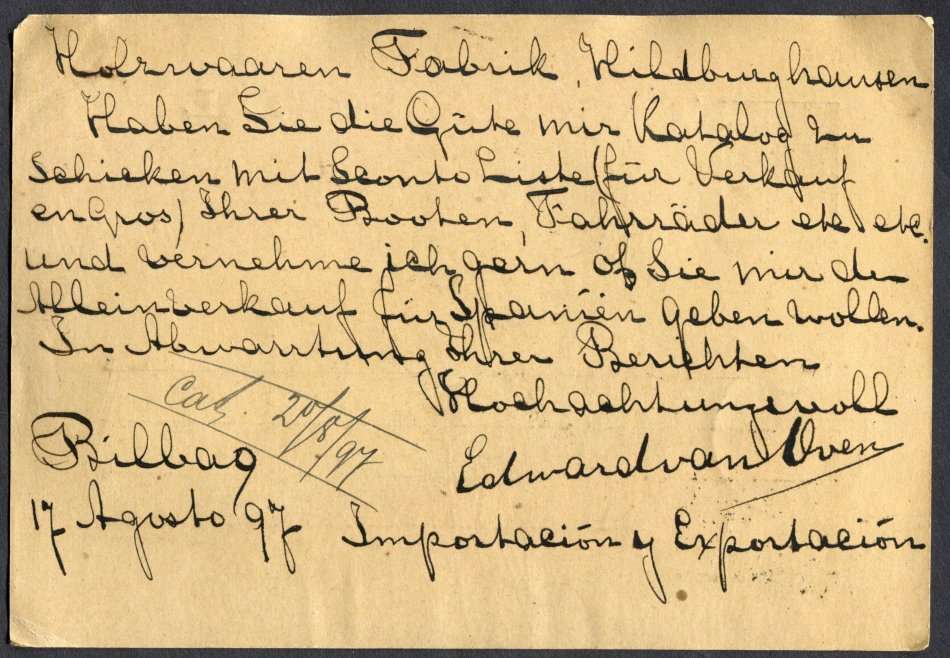 Holzwaaren Fabrik, Hildburghausen
Haben Sie die Güte mir Katalog zu
schicken mit Sconto Liste (für Verkauf
en Gros) Ihrer Booten, Fahrräder etc etc.
und vernehme ich gern ob Sie mir den
Alleinverkauf für Spanien geben wollen.
In Abwartung Ihrer Berichten
Hochachtungsvoll
Cat. 20/8/97
Bilbao
Edward van Oven
17 Agosto 97
Importación y Exportación